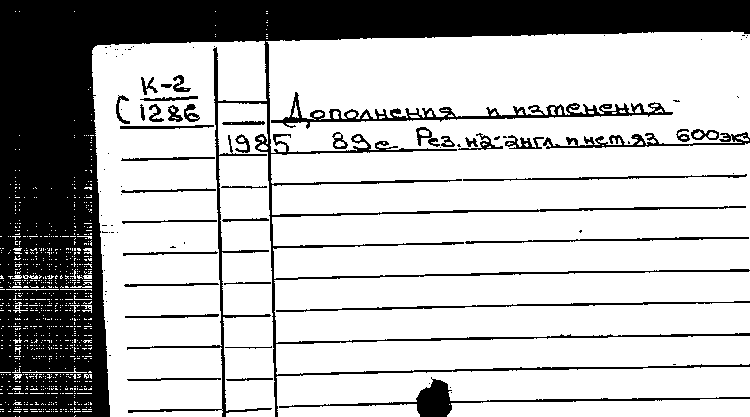 К-2
С 1286
Дополнения и изменения
1985 89с. Рез. на англ. и нем. яз. 600экз